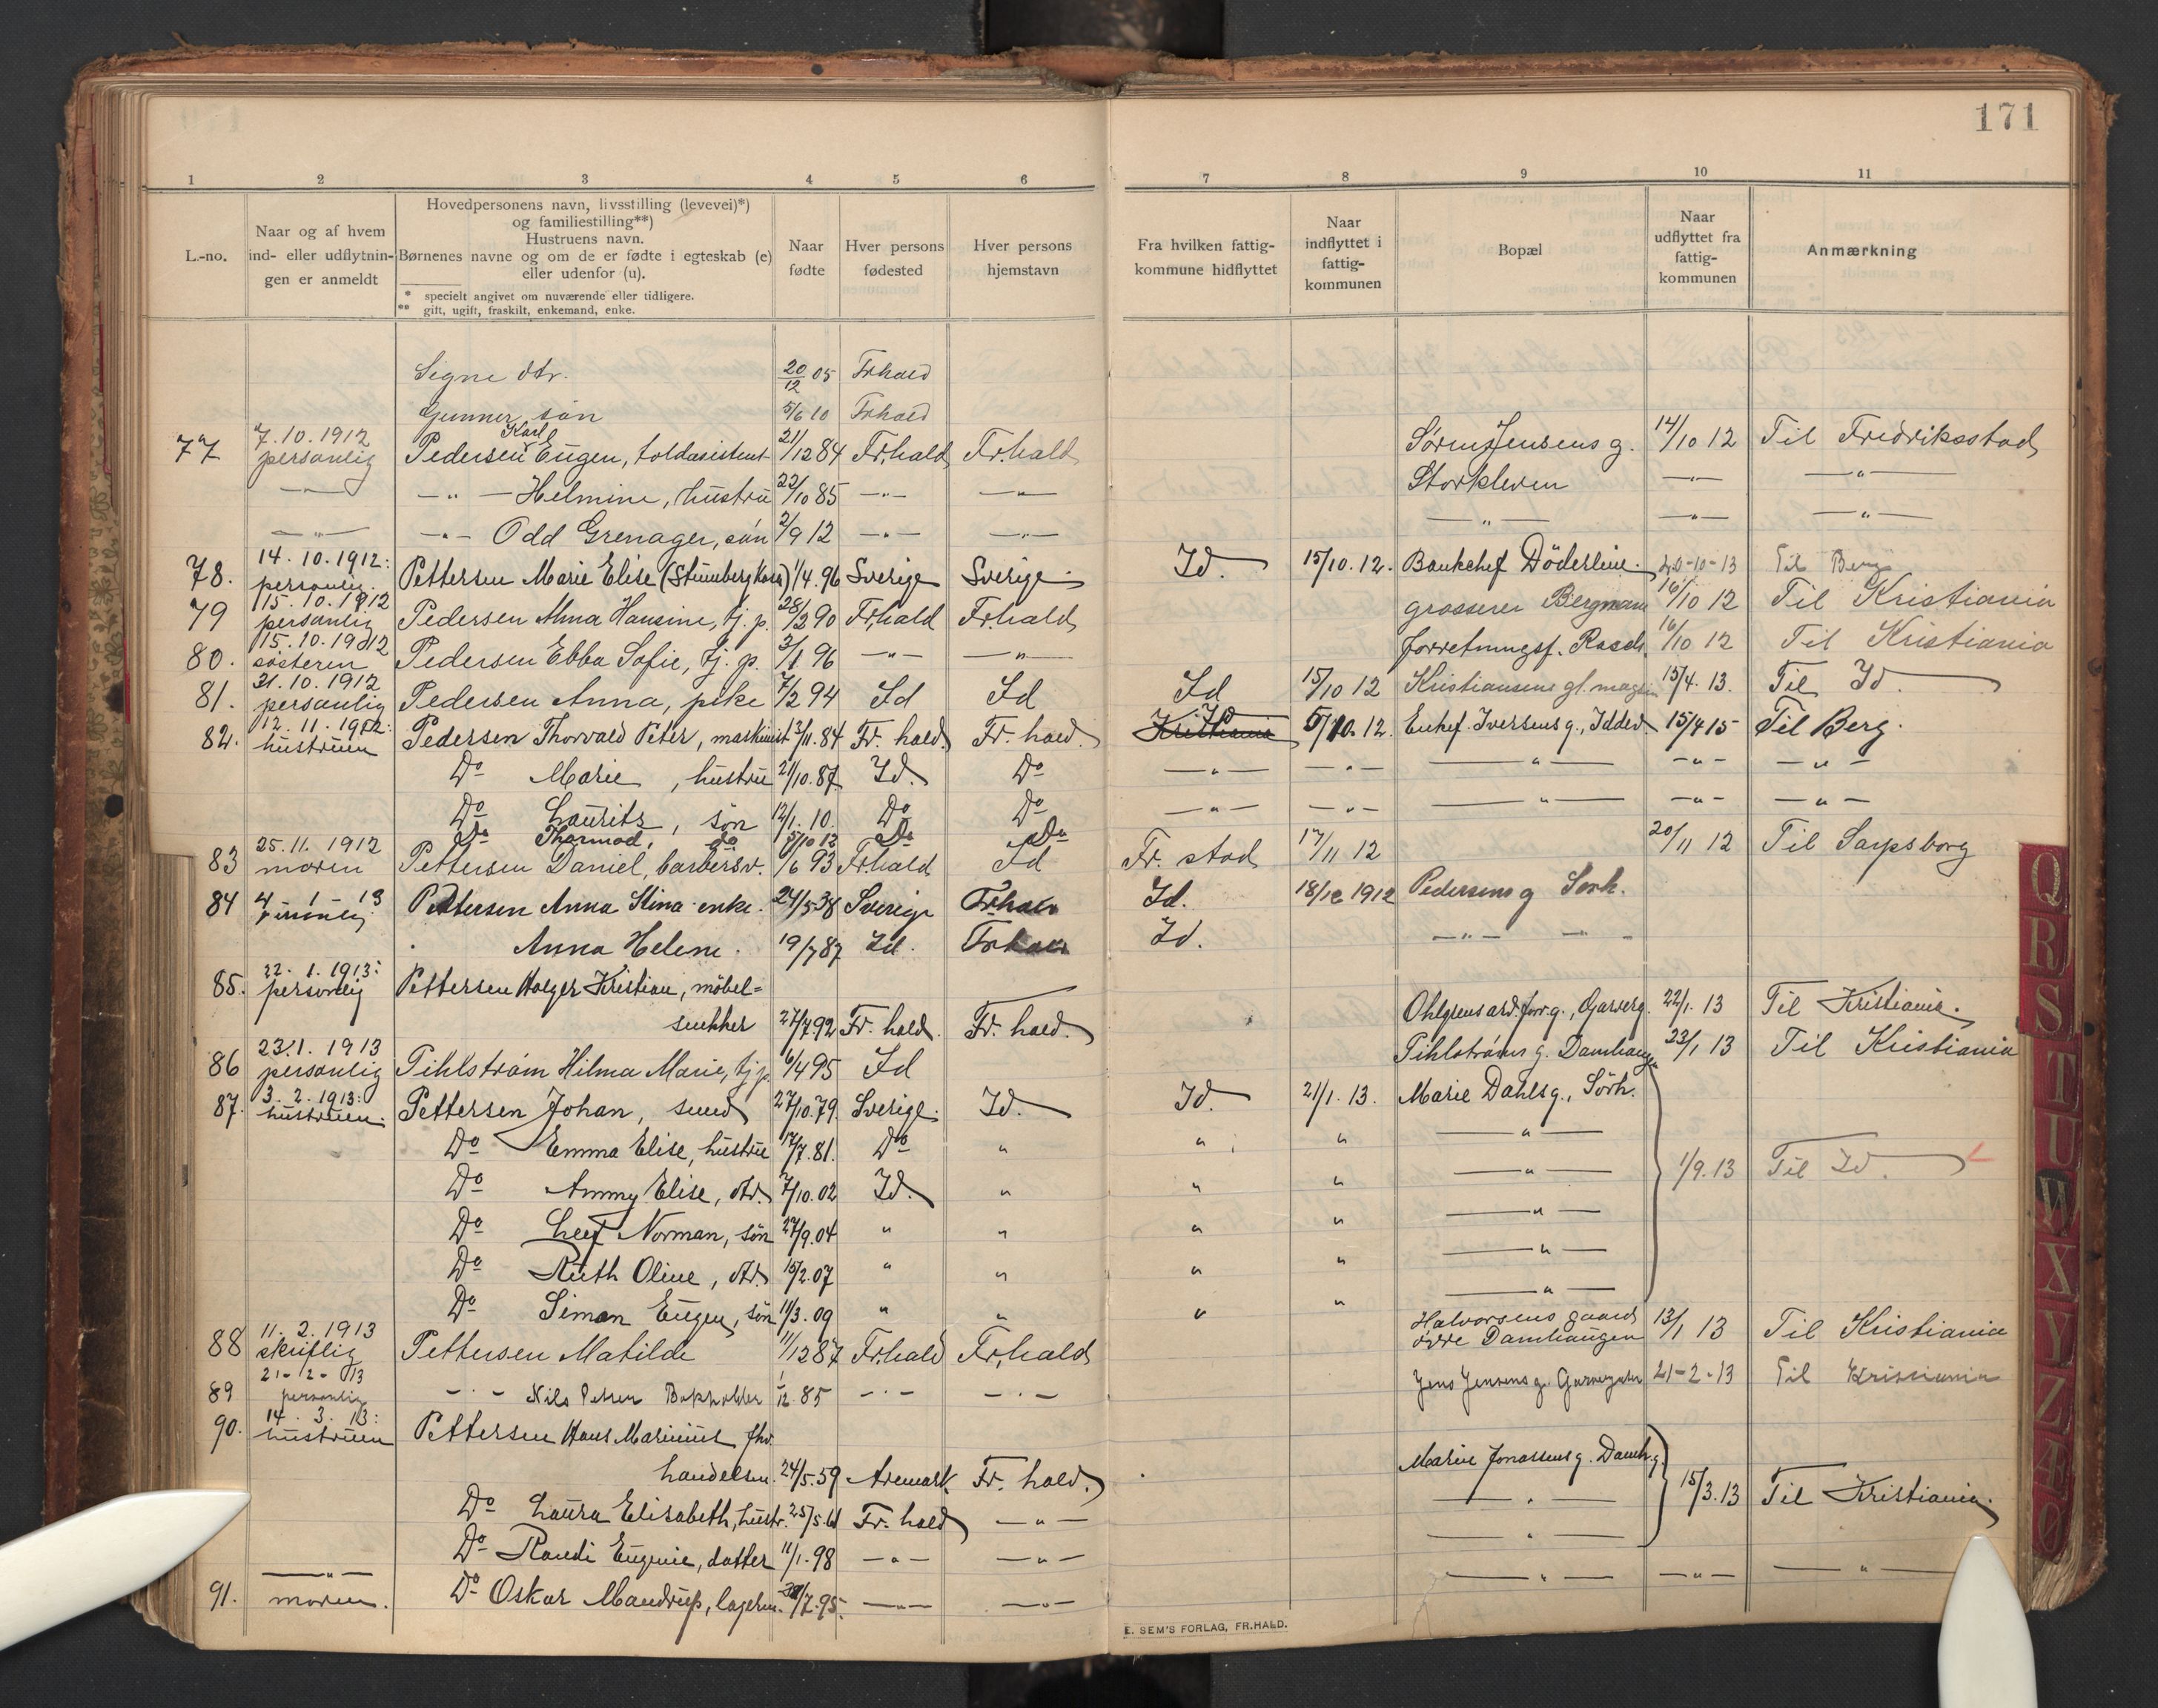 171
1 2 3 4 5 6 7 8 9 10 11
L.-no.
Naar og af hvem
ind- eller udflytnin-
gen er anmeldt
Hovedpersonens navn, livsstilling (levevei)*)
og familiestilling**)
Hustruens navn.
Børnenes navne og om de er fødte i egteskab (e)
eller udenfor (u).
* specielt angivet om nuværende eller tidligere.
** gift, ugift, fraskilt, enkemand, enke.
Naar
fødte
Hver persons
fødested
Hver persons
hjemstavn
Fra hvilken fattig-
kommune hidflyttet
Naar
indflyttet i
fattig-
kommunen
Bopæl
Naar
udflyttet fra
fattig-
kommunen
Anmærkning
Signe dtr. 20/12 05 Frhald
Gunner søn 5/6 10 Frhald
77 7.10.1912 personlig Pedersen Karl Eugen, toldasistent 21/12 84 Fr.hald Fr.hald Søren Jensens g. 14/10 12 Til Fredriksstad
—"— —"— Helmine, hustru 22/10 85 —"— —"— Storkleven —"— —"—
—"— —"— Odd Grenager, søn 2/9 12 —"— —"— —"— —"— —"—
78. 14.10.1912: personlig Pettersen Marie Elise 1/4.96 Sverige Sverige Id. 15/10.12. Bankchef Döderlein. 20-10-13 Til Berg
79 15.10.1912 personlig Pedersen Anna Hansine, tj. p. 28/2 90 Fr.hald Fr.hald grosserer Bergmann 16/10 12 Til Kristiania
80. 15.10.1912 søsteren Pedersen Ebba Sofie, tj. p. 3/1 96 —"— —"— forretningsf. Rasch. 16/10 12 Til Kristiania
81. 31.10.1912 personlig Pedersen Anna, pike 7/2 94 Id Id Id 15/10 12 Kristiansens gl. magasin 15/4.13. Til Id.
82. 12.11.1912: hustruen Pedersen Thorvald Peter, maskinist 13/11.84 Fr. hald. Fr. hald. Kristiania Id 5/10.12. Enkef. Iversens g., Iddev. 15/4 15 Til Berg.
Do Marie, hustru 21/10.87 Id. Do —"— —"— —"— —"— —"—
Do Laurits, søn 12/1.10. Do Do —"— —"— —"— —"— —"—
Do Thormod, do 15/10 12 Do Do
83 25.11.1912 moren Pettersen Daniel, barbersv. /6 93 Fr.hald Id Fr. stad 17/11 12 20/11 12 Til Sarpsborg
84 4 1 13 personlig. Pettersen Anna Stina enke. 24/5 38 Sverige Frhald Id. 18/12 1912 Pedersens g Sørh.
Anna Helene. 19/7 87 Id. Frhald Id. —"—
85. 22.1.1913: personlig Pettersen Holger Kristian, møbel=
snekker 27/7.92 Fr. hald. Fr. hald. Ohlgrens ard. forr. g., Garverg. 22/1.13 Til Kristiania.
86 23.1.1913 personlig Pihlstrøm Hilma Marie, tj p. 6/4 95 Id Pihlstrøms g. Damhaugen 23/1 13 Til Kristiania
87. 3.2.1913: hustruen. Pettersen Johan, smed 27/10.79. Sverige. Id. Id. 21/1.13. Marie Dahls g., Sörh.
Do Emma Elise, hustru 17/7.81. Do " " " —"—
Do Ammy Elise, dtr. 7/10.02 Id. " " " —"— 1/9.13 Til Id.
Do Leif Norman, søn 27/9.04 " " " " —"—
Do Ruth Oline, dtr. 15/2.07 " " " " —"—
Do Simon Eugen, søn 11/3.09 " " " " —"—
88 11.2.1913 skriftlig Pettersen Matilde 11/12 87 Fr.hald Fr.hald Halvorsens gaard
øvre Damhaugen 13/1 13 Til Kristiania
89 21-2-13 personlig —"— Nils Petter 1/12 85 —"— —"— Jens Jensens g. Garvergaten 21-2-13 Til Kristiania
90. 14.3.13: hustruen Pettersen Hans Marinius fhv.
handelsm. 24/5.59 Aremark Fr. hald. Marie Jonassens g. Damh.g.
Do Laura Elisabeth, hustr. 25/5.61 Fr. hald —"— —"— 15/3.13 Til Kristiania.
Do Randi Eugenie, datter 11/1.98 —"— —"— —"—
91. —"— moren. Do Oskar Mandrup, lagerm. 30/7.95. —"— —"— —"— —"— —"—
E. SEM'S FORLAG, FR.HALD.
Q
R
S
T
U
W
X
Y
Z
Æ
Ø